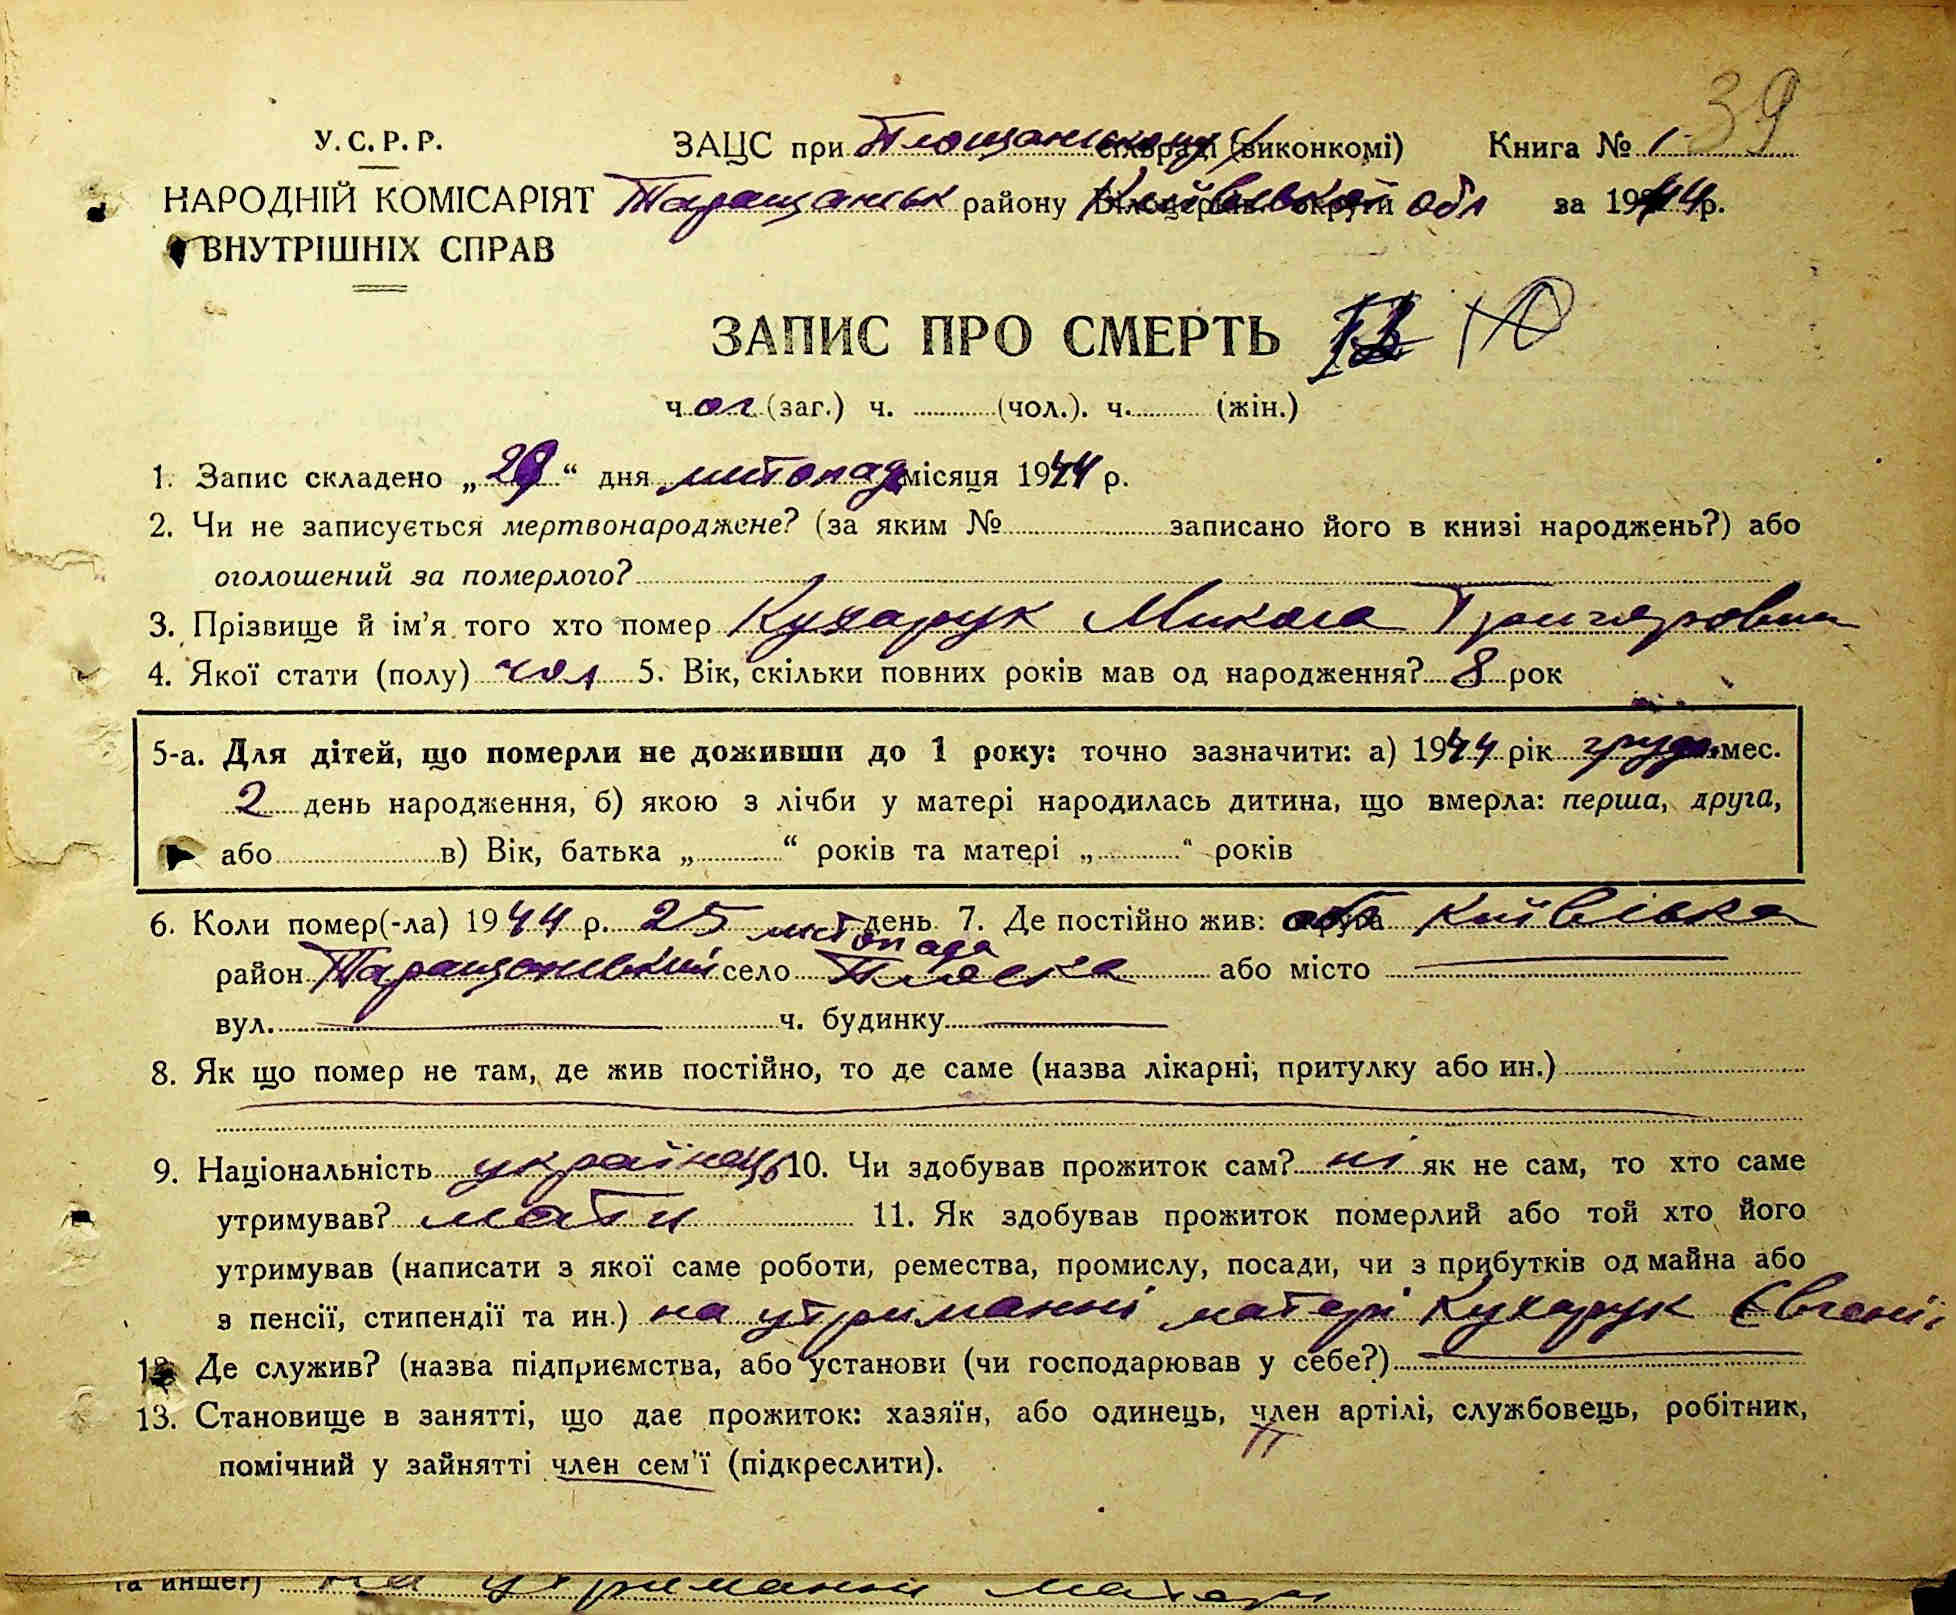 39
У. С. Р. Р.
ЗАЦС при сільраді (виконкомі) Книга № 1
НАРОДНІЙ КОМІСАРІЯТ Таращанськ району Київської обл за 1944 р.
ВНУТРІШНІХ СПРАВ
ЗАПИС ПРО СМЕРТЬ
ч. (заг.) ч. (чол.). ч. (жін.)
1. Запис складено „29“ дня листопад місяця 1944 р.
2. Чи не записується мертвонароджене? (за яким № записано його в книзі народжень?) або
оголошений за померлого?
3. Прізвище й ім’я того хто помер Кухарук Микола
4. Якої стати (полу) чол 5. Вік, скільки повних років мав од народження? 8 рок
5-а. Для дітей, що померли не доживши до 1 року: точно зазначити: а) 1944 рік груд. мес.
2 день народження, б) якою з лічби у матері народилась дитина, що вмерла: перша, друга,
або в) Вік, батька „ “ років та матері „ “ років
6. Коли помер(-ла) 1944 р. 25 листопада день 7. Де постійно жив: обл Київська
район Таращанський село або місто
вул. ч. будинку
8. Як що помер не там, де жив постійно, то де саме (назва лікарні, притулку або ин.)
9. Національність українець 10. Чи здобував прожиток сам? ні як не сам, то хто саме
утримував? мати 11. Як здобував прожиток померлий або той хто його
утримував (написати з якої саме роботи, ремества, промислу, посади, чи з прибутків од майна або
з пенсії, стипендії та ин.) на утриманні матері Кухарук Євгенії
12. Де служив? (назва підприємства, або установи (чи господарював у себе?)
13. Становище в занятті, що дає прожиток: хазяїн, або одинець, член артілі, службовець, робітник,
помічний у зайнятті член сем’ї (підкреслити).
та инше?) на утриманні матері